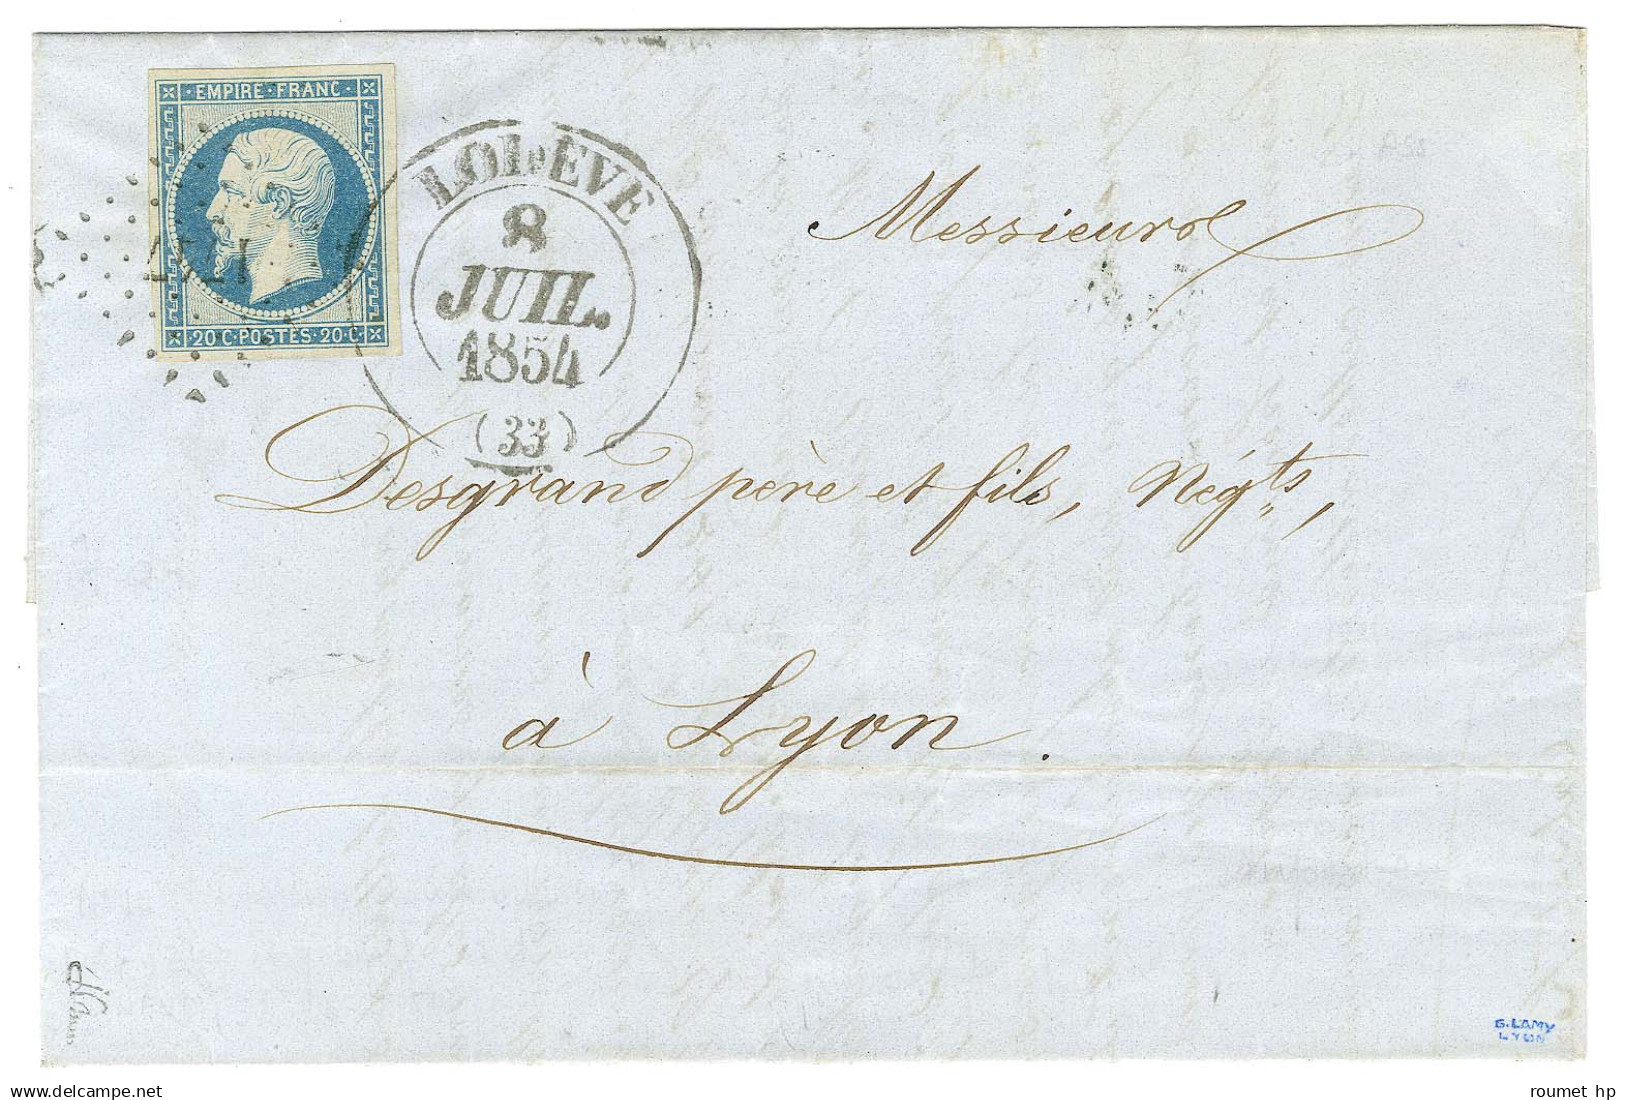 EMPIRE · FRANC ·
· 20 C · POSTES · 20 C ·
LODÈVE
8
JUIL.
1854
(33)
Messieurs
Desgrand père et fils, Négts,
à Lyon.
G. LAMY
LYON
roumet hp